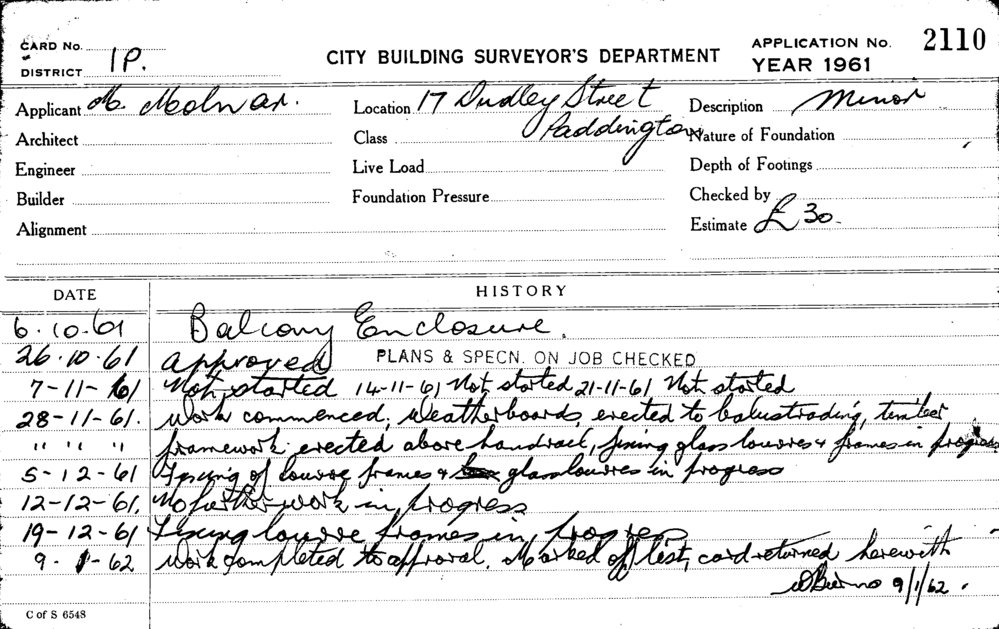 CARD No.
DISTRICT 1P.
CITY BUILDING SURVEYOR'S DEPARTMENT
APPLICATION No. 2110
YEAR 1961
Applicant M. Molnar.
Location 17 Dudley Street
Paddington
Description Minor
Architect
Class
Nature of Foundation
Engineer
Live Load
Depth of Footings
Builder
Foundation Pressure
Checked by
Alignment
Estimate £30-
DATE HISTORY
6.10.61 Balcony Enclosure.
26.10.61 approved PLANS & SPECN. ON JOB CHECKED
7-11-61 Not started 14-11-61 Not started 21-11-61 Not started
28-11-61. Work commenced, Weatherboards erected to balustrading, timber
" " " framework erected above handrail, fixing glass louvres & frames in progress
5-12-61 Fixing of louvre frames & glass louvres in progress
12-12-61. No further work in progress
19-12-61 Fixing louvre frames in progress
9-1-62 Work completed to approval. Marked off list, card returned herewith
9/1/62.
C of S 6548